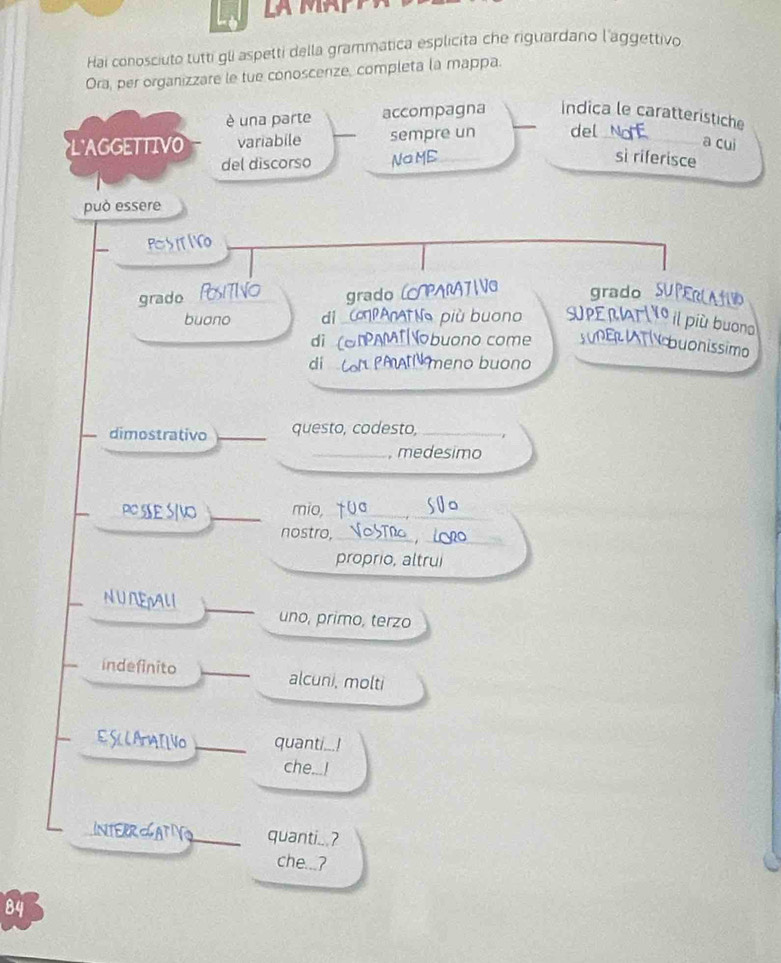 LA MAPPA
Hai conosciuto tutti gli aspetti della grammatica esplicita che riguardano l'aggettivo.
Ora, per organizzare le tue conoscenze, completa la mappa.
L'AGGETTIVO
è una parte
variabile
del discorso
accompagna
sempre un
NOME
indica le caratteristiche
del NOME a cui
si riferisce
può essere
POSITIVO
grado POSITIVO
buono
grado COMPARATIVO
di COMPARATIVO più buono
di COMPARATIVO buono come
di COMPARATIVO meno buono
grado SUPERLATIVO
SUPERLATIVO il più buono
SUPERLATIVO buonissimo
dimostrativo
questo, codesto, ________,
________, medesimo
POSSESIVO
mio, TUO, SUO
nostro, VOSTRO, LORO
proprio, altrui
NUMERALI
uno, primo, terzo
indefinito
alcuni, molti
ESCLAMATIVO
quanti...!
che...!
INTERROGATIVO
quanti...?
che...?
84